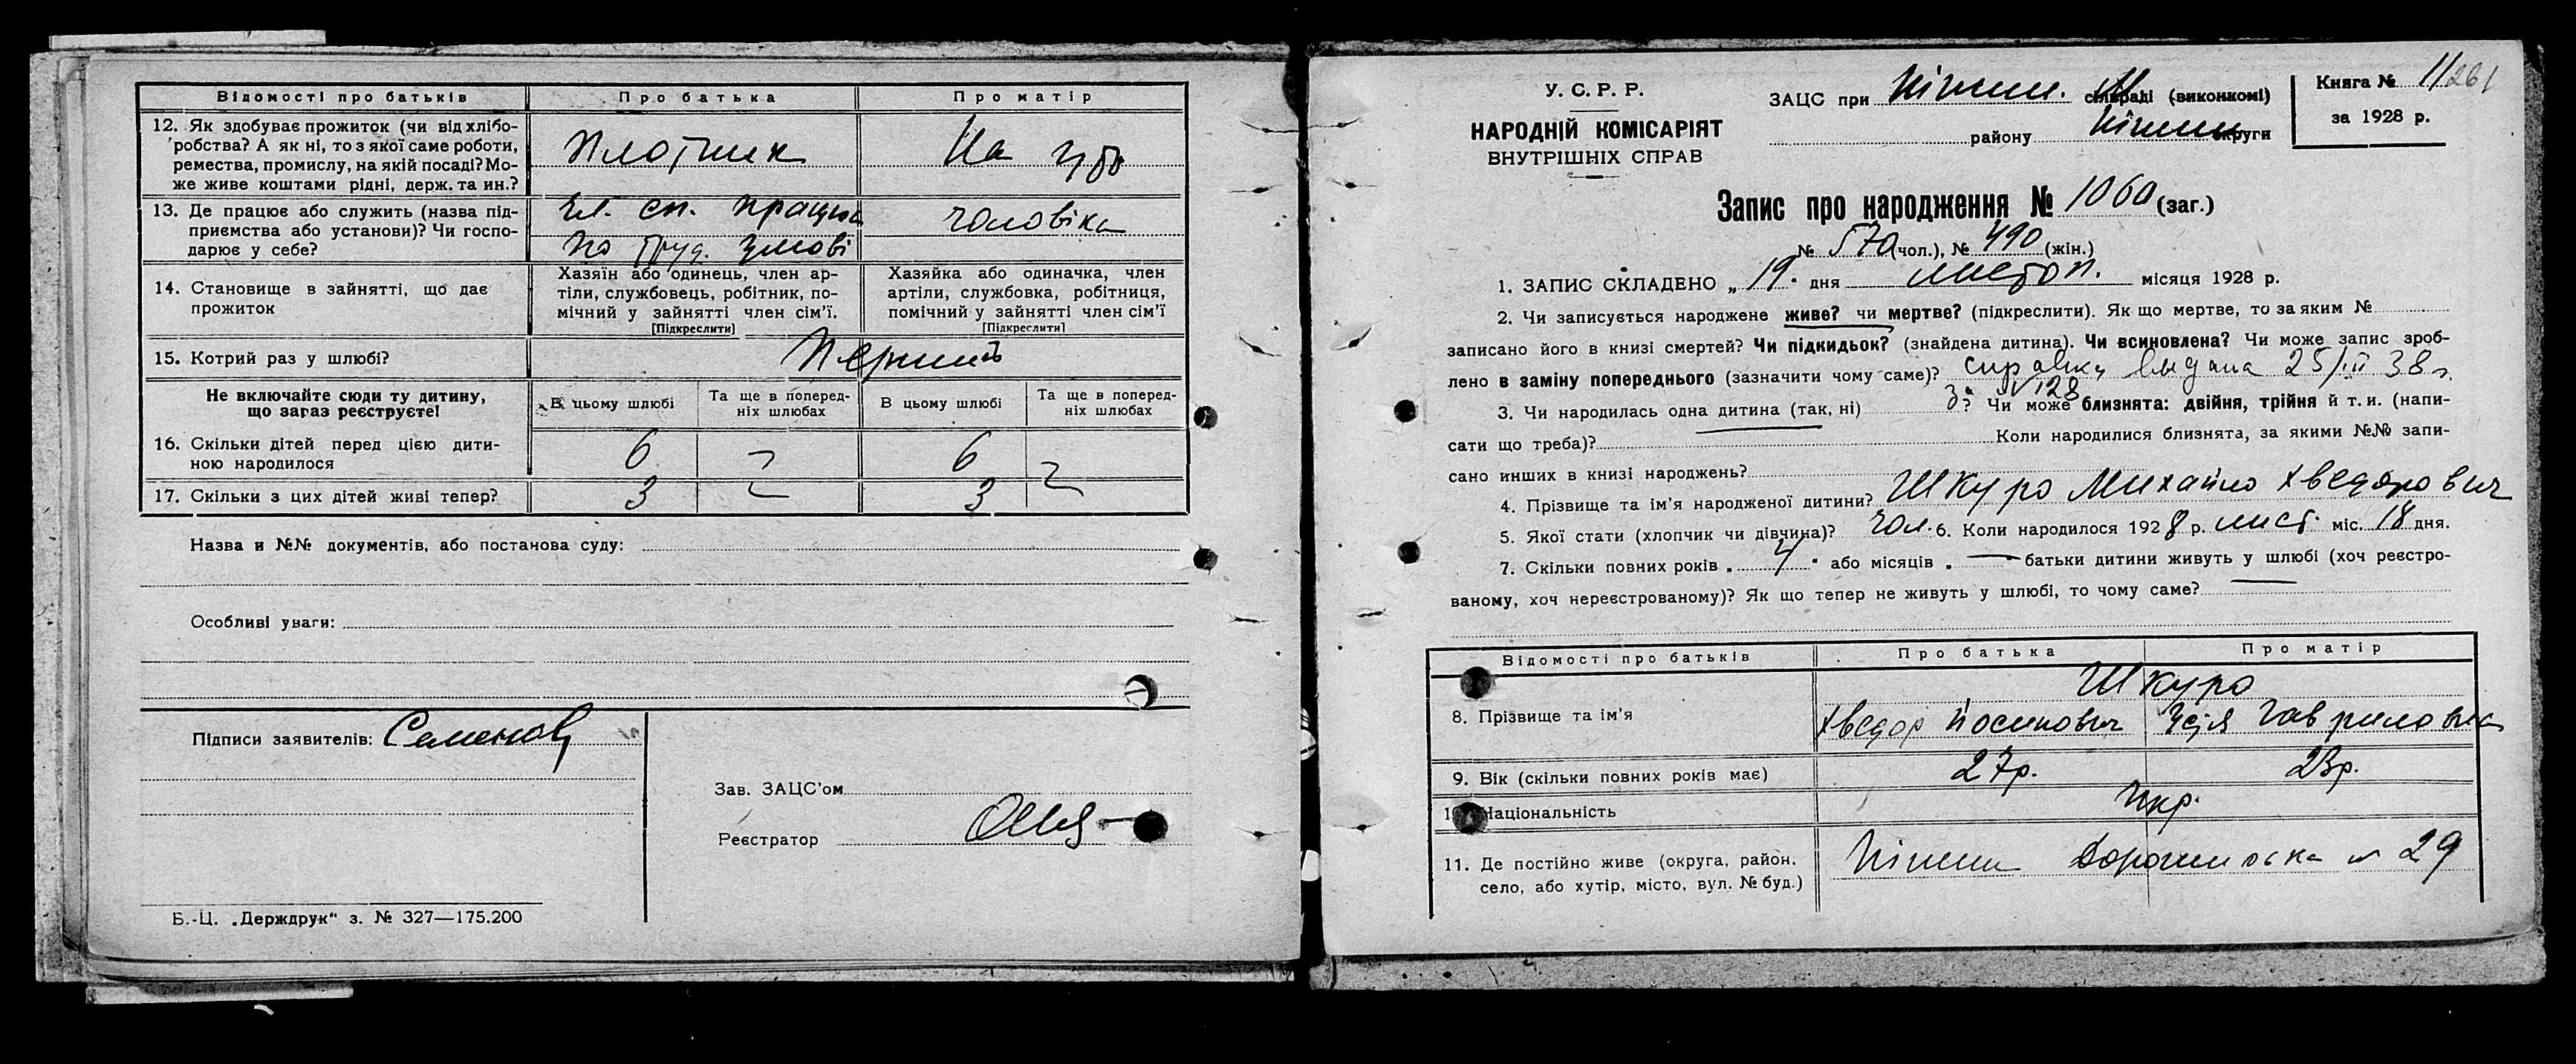 Відомості про батьків Про батька Про матір
12. Як здобуває прожиток (чи від хлібо-
робства? А як ні, то з якої саме роботи,
ремества, промислу, на якій посаді? Мо-
же живе коштами рідні, держ. та ин.?
Плотник На утр
13. Де працює або служить (назва під-
приємства або установи)? Чи госпо-
дарює у себе?
Чл. сп. працює чоловіка
по труд. умові
14. Становище в зайнятті, що дає
прожиток
Хазяїн або одинець, член ар-
тілі, службовець, робітник, по-
мічний у зайнятті член сім'ї.
[Підкреслити]
Хазяйка або одиначка, член
артілі, службовка, робітниця,
помічний у зайнятті член сім'ї
[Підкреслити]
15. Котрий раз у шлюбі? Перший
Не включайте сюди ту дитину,
що зараз реєструєте!
В цьому шлюбі Та ще в поперед-
ніх шлюбах В цьому шлюбі Та ще в поперед-
ніх шлюбах
16. Скільки дітей перед цією дити-
ною народилося 6 6
17. Скільки з цих дітей живі тепер? 3 3
Назва и №№ документів, або постанова суду:
Особливі уваги:
Підписи заявителів:
Зав. ЗАЦС'ом
Реєстратор
Б.-Ц. „Держдрук" з. № 327—175.200
У. С. Р. Р.
НАРОДНІЙ КОМІСАРІЯТ
ВНУТРІШНІХ СПРАВ
ЗАЦС при Ніжин. М сільраді (виконкомі)
району Ніжин округи
Книга № 11 261
за 1928 р.
Запис про народження № 1060 (заг.)
№ 570 (чол.), № 490 (жін.)
1. ЗАПИС СКЛАДЕНО „ 19 " дня листоп. місяця 1928 р.
2. Чи записується народжене живе? чи мертве? (підкреслити). Як що мертве, то за яким №
записано його в книзі смертей? Чи підкидьок? (знайдена дитина). Чи всиновлена? Чи може запис зроб-
лено в заміну попереднього (зазначити чому саме)? справка выдана 25/III 38 г.
за N 128
3. Чи народилась одна дитина (так, ні) ? Чи може близнята: двійня, трійня й т. и. (напи-
сати що треба)? Коли народилися близнята, за якими №№ запи-
сано инших в книзі народжень?
4. Прізвище та ім'я народженої дитини? Шкуро Михайло Хведорович
5. Якої стати (хлопчик чи дівчина)? Чол. 6. Коли народилося 1928 р. лист. міс. 18 дня.
7. Скільки повних років „ 4 " або місяців „ — батьки дитини живуть у шлюбі (хоч реєстро-
ваному, хоч нереєстрованому)? Як що тепер не живуть у шлюбі, то чому саме? —
Відомості про батьків Про батька Про матір
Шкуро
8. Прізвище та ім'я Хведор Йосипович Гавриловна
9. Вік (скільки повних років має) 27р. 23р.
10. Національність Укр.
11. Де постійно живе (округа, район,
село, або хутір, місто, вул. № буд.)
Ніжин № 29